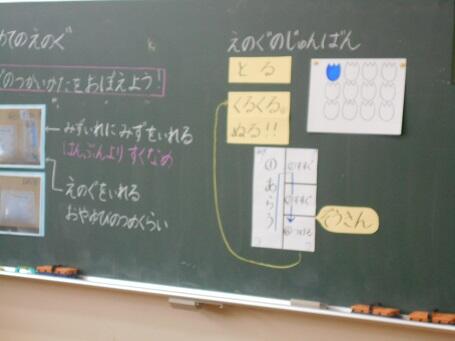 めてのえのぐ
のつかいかたをおぼえよう！
みずいれにみずをいれる
はんぶんよりすくなめ
えのぐをいれる
おやゆびのつめくらい
えのぐのじゅんばん
とる
くるくる。
ぬる！！
①あらう
ぞうさん